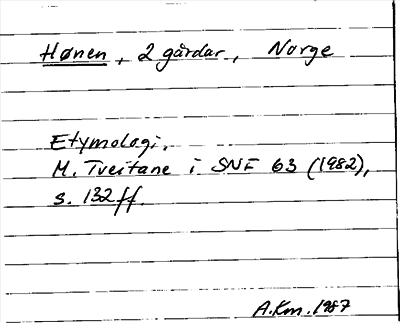 Hønen, 2 gårdar, Norge
Etymologi.
M. Tveitane i SNF 63 (1982),
s. 132 ff.
A.Km. 1987